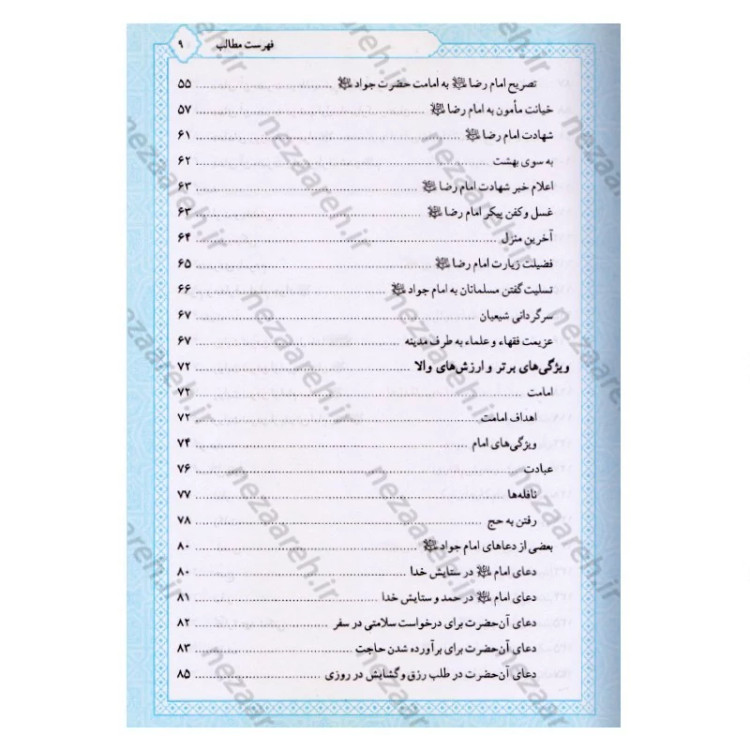 فهرست مطالب ۹
تصریح امام رضا ﷷ به امامت حضرت جواد ﷷ ۵۵
خیانت مأمون به امام رضا ﷷ ۵۷
شهادت امام رضا ﷷ ۶۱
به سوی بهشت ۶۲
اعلام خبر شهادت امام رضا ﷷ ۶۳
غسل و کفن پیکر امام رضا ﷷ ۶۳
آخرین منزل ۶۴
فضیلت زیارت امام رضا ﷷ ۶۵
تسلیت گفتن مسلمانان به امام جواد ﷷ ۶۶
سرگردانی شیعیان ۶۷
عزیمت فقهاء و علماء به طرف مدینه ۶۷
ویژگی‌های برتر و ارزش‌های والا ۷۲
امامت ۷۲
اهداف امامت ۷۲
ویژگی‌های امام ۷۴
عبادت ۷۶
نافله‌ها ۷۷
رفتن به حج ۷۸
بعضی از دعاهای امام جواد ﷷ ۸۰
دعای امام ﷷ در ستایش خدا ۸۰
دعای امام ﷷ در حمد و ستایش خدا ۸۱
دعای آن‌حضرت برای درخواست سلامتی در سفر ۸۲
دعای آن‌حضرت برای برآورده شدن حاجت ۸۳
دعای آن‌حضرت در طلب رزق و گشایش در روزی ۸۵
nezaareh.ir